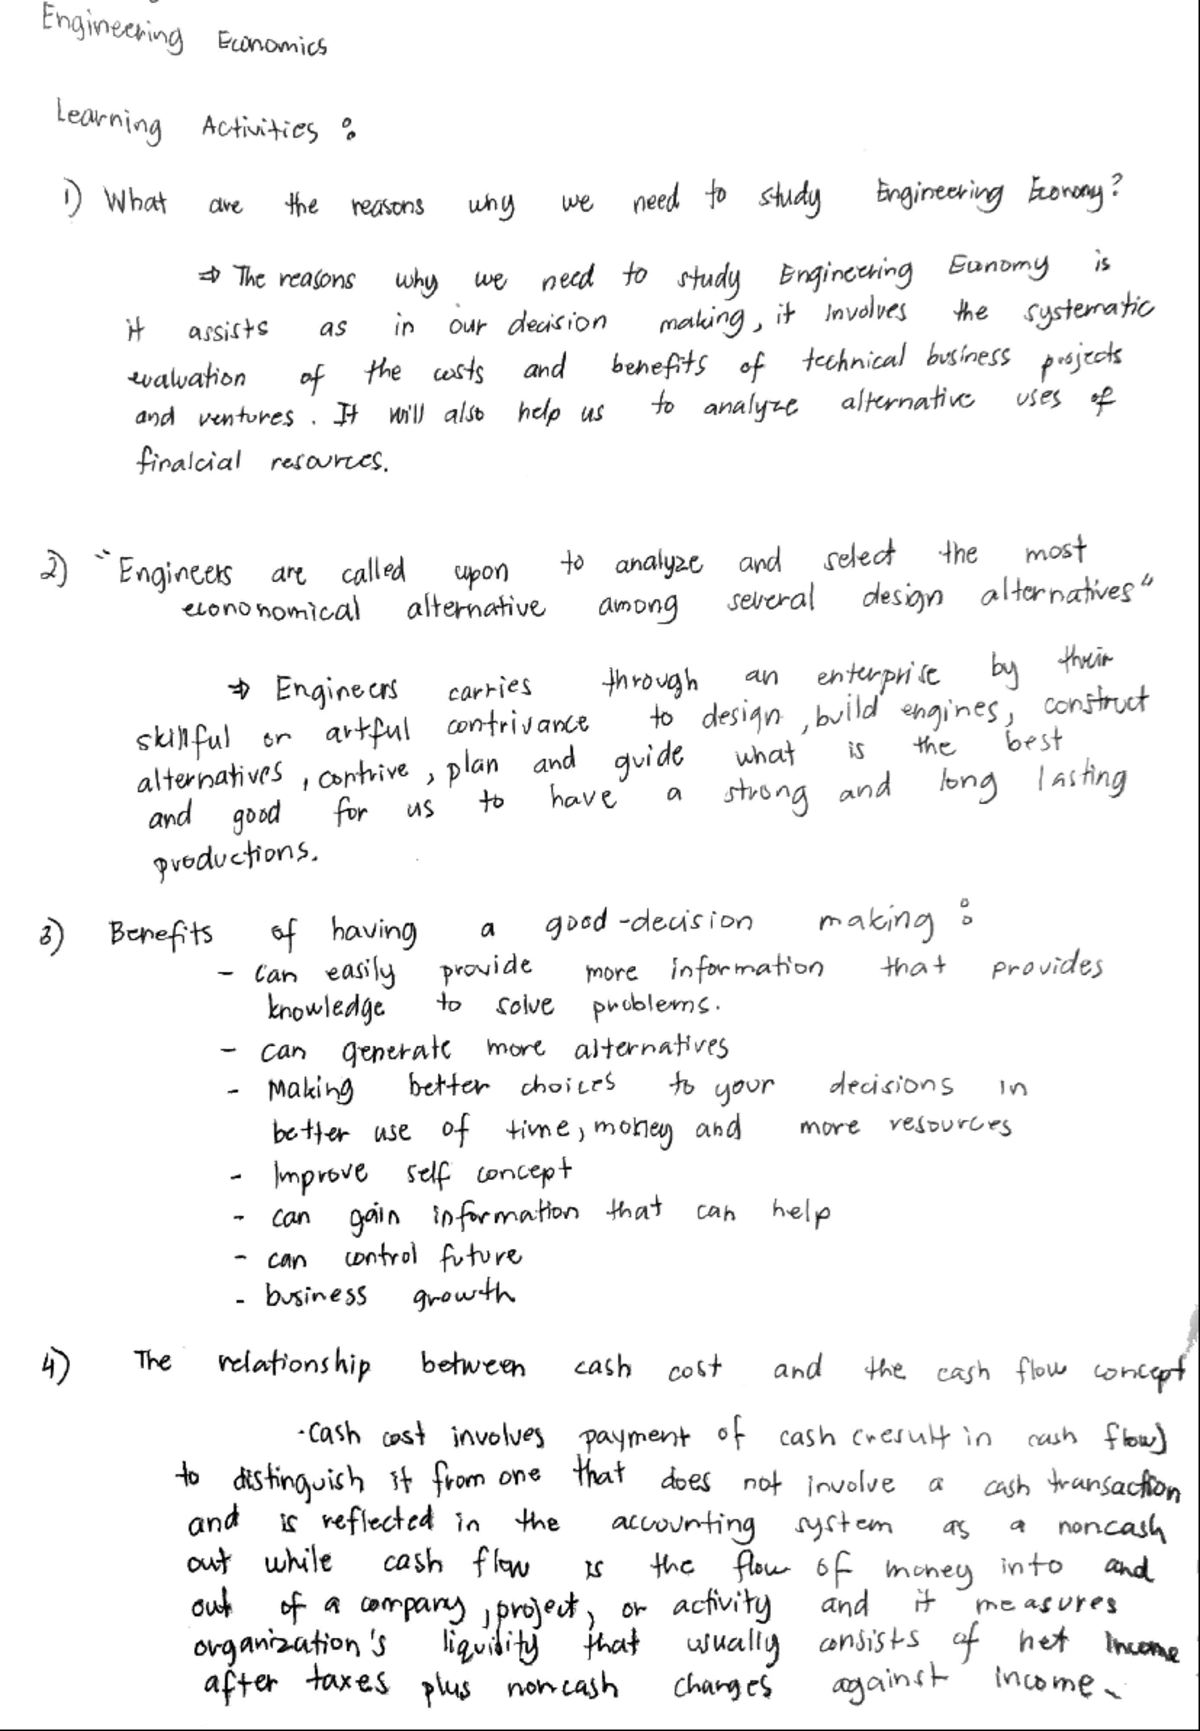 Engineering Economics
Learning Activities :
1) What are the reasons why we need to study Engineering Economy?
⇒ The reasons why we need to study Engineering Economy is
it assists as in our decision making, it involves the systematic
evaluation of the costs and benefits of technical business projects
and ventures. It will also help us to analyze alternative uses of
finalcial resources.
2) "Engineers are called upon to analyze and select the most
econonomical alternative among several design alternatives"
⇒ Engineers carries through an enterprise by their
skillful or artful contrivance to design, build engines, construct
alternatives, contrive, plan and guide what is the best
and good for us to have a strong and long lasting
productions.
3) Benefits of having a good-decision making :
- can easily provide more information that provides
knowledge to solve problems.
- can generate more alternatives
- Making better choices to your decisions in
better use of time, money and more resources
- Improve self concept
- can gain information that can help
- can control future
- business growth
4) The relationship between cash cost and the cash flow concept
·Cash cost involves payment of cash (result in cash flow)
to distinguish it from one that does not involve a cash transaction
and is reflected in the accounting system as a noncash
out while cash flow is the flow of money into and
out of a company, project, or activity and it measures
organization's liquidity that usually consists of net income
after taxes plus noncash charges against income.